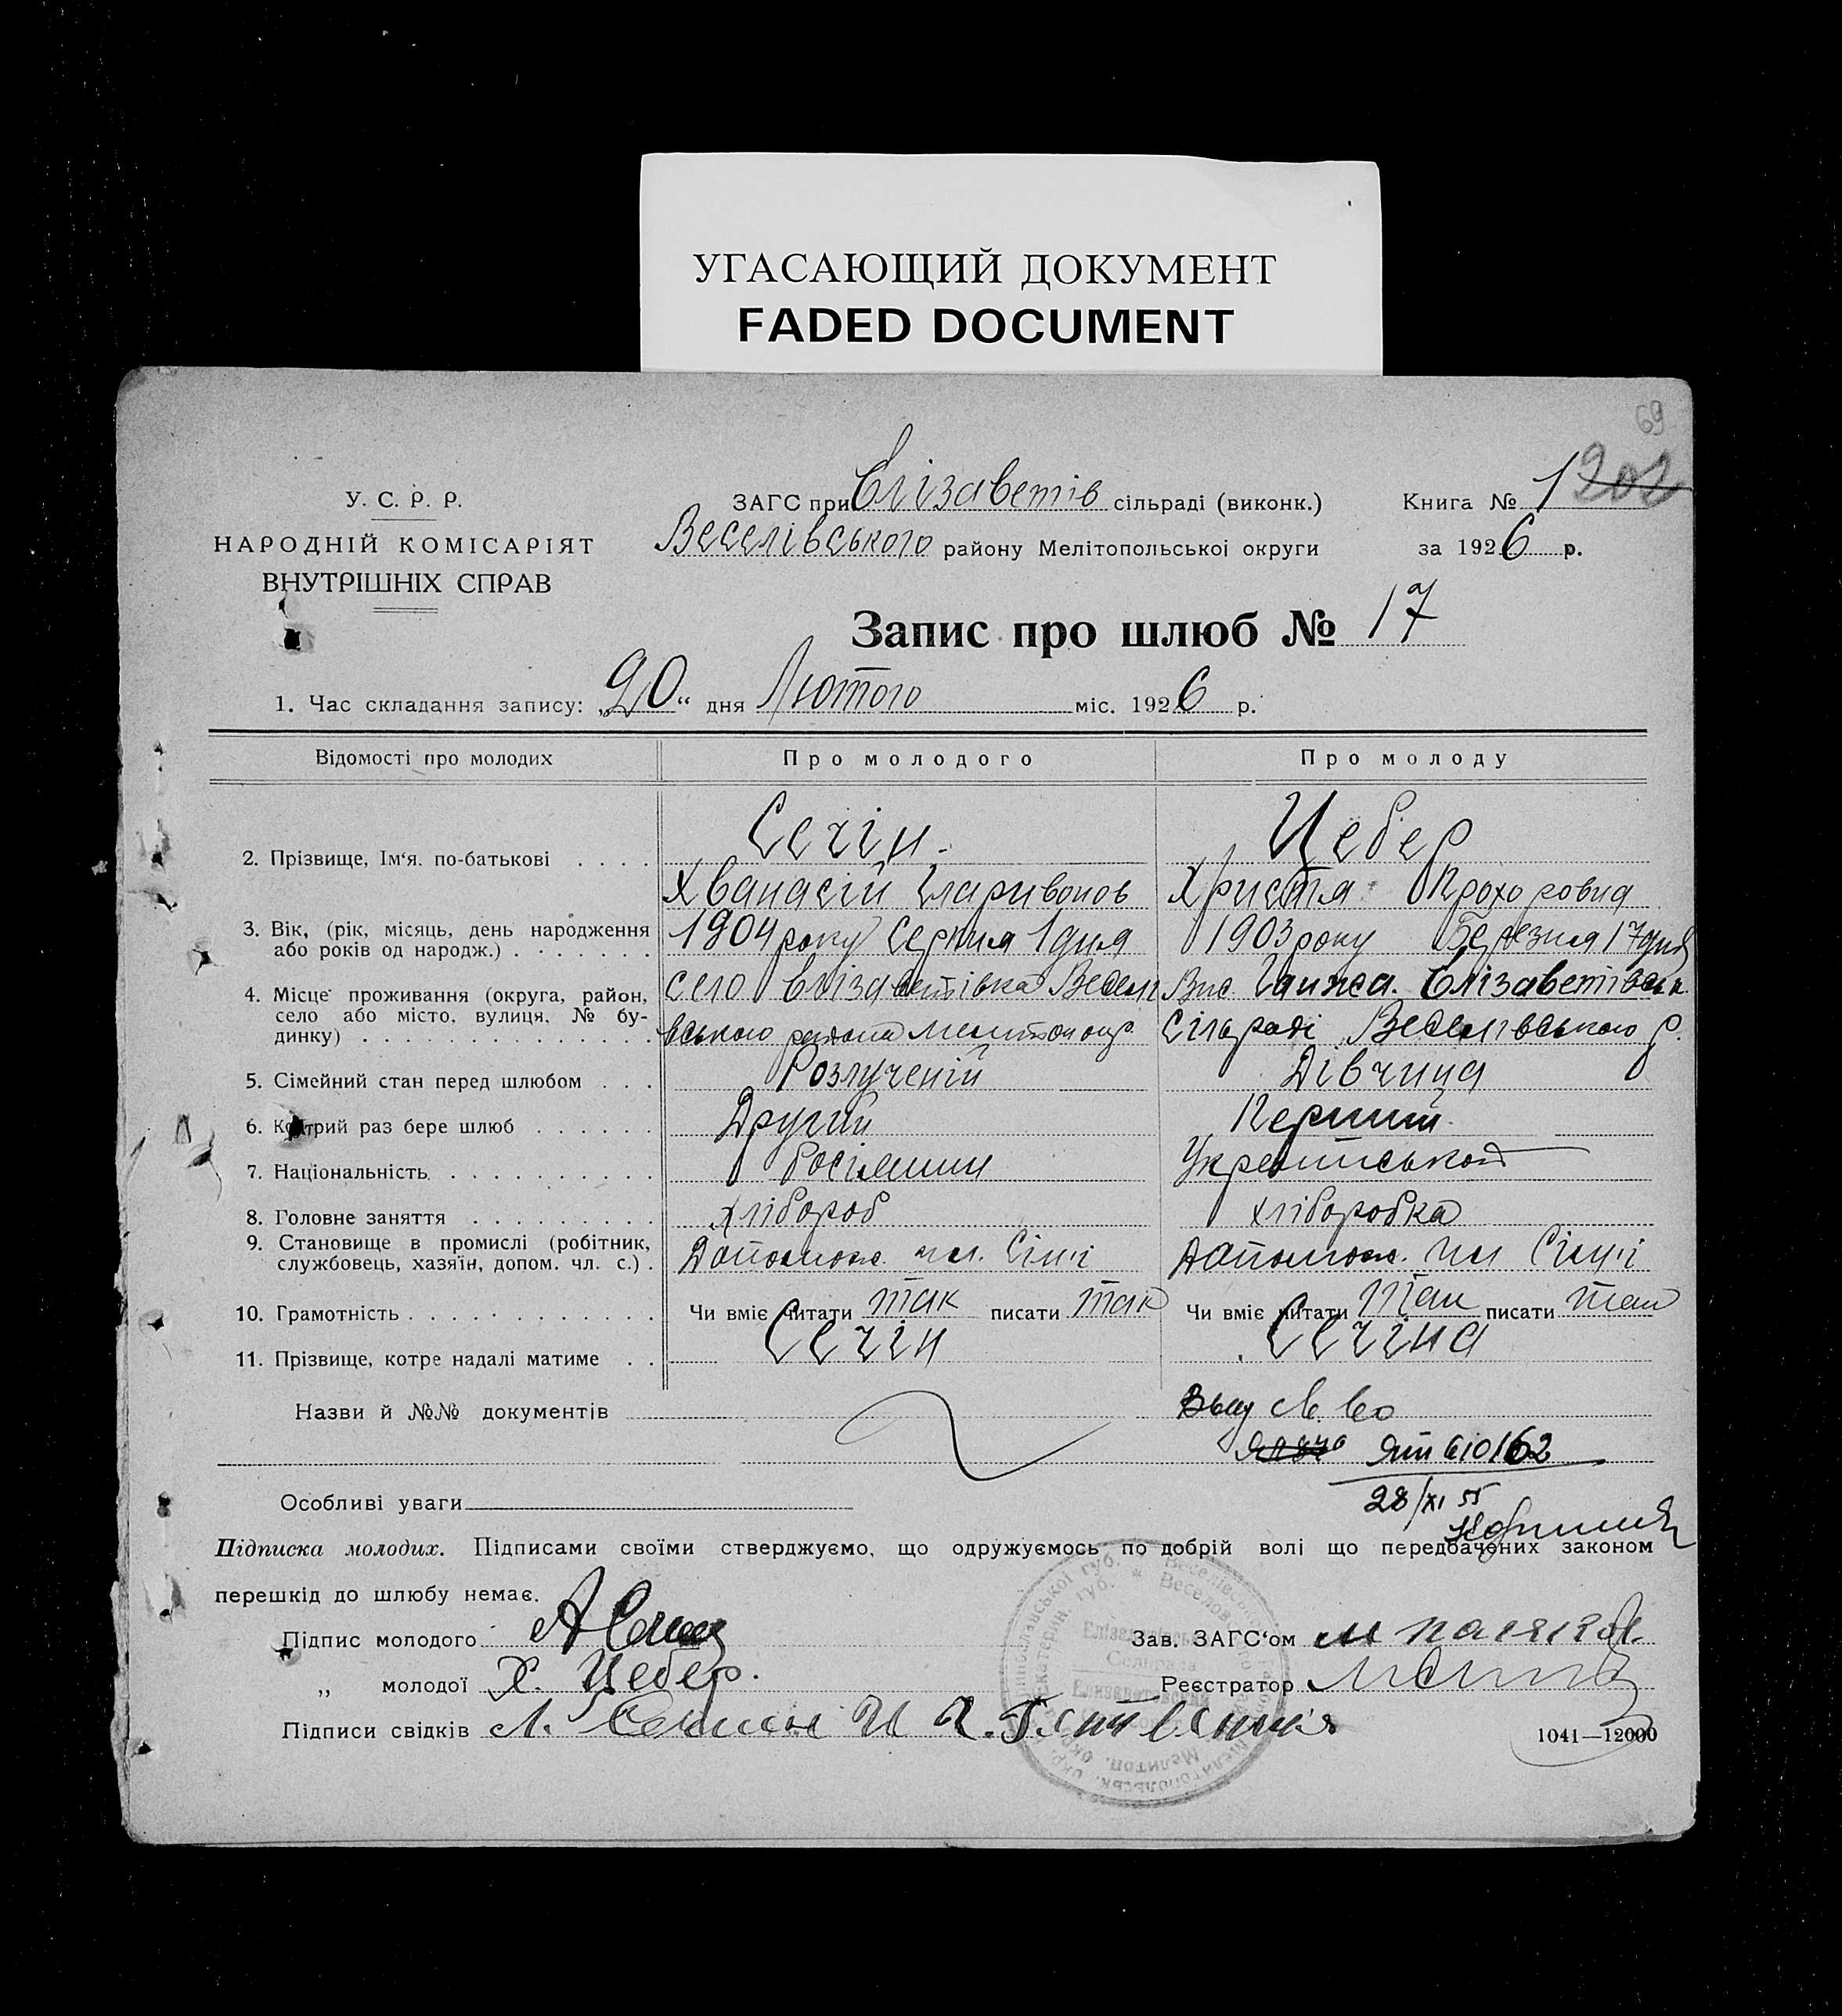 УГАСАЮЩИЙ ДОКУМЕНТ
FADED DOCUMENT
69
У. С. Р. Р.
НАРОДНІЙ КОМІСАРІЯТ
ВНУТРІШНІХ СПРАВ
ЗАГС при Єлізаветів сільраді (виконк.)
Веселівського району Мелітопольської округи
Книга № 1 202
за 1926 р.
Запис про шлюб № 17
1. Час складання запису: „20“ дня Лютого міс. 1926 р.
Відомості про молодих Про молодого Про молоду
2. Прізвище, Ім‘я. по-батькові . . . .
Сечін Цебер
Хванасій Іларивонов Христя Прохоровна
3. Вік, (рік, місяць, день народження або років од народж.) . . . . . . .
1904 року Серпня 1 дня 1903 року Березня 17 дня
4. Місце проживання (округа, район, село або місто, вулиця, № будинку) . . . . . . . . . . . . . .
село Єлізаветівка Веселі Вис. Єлізаветівськ.
вського района Сільраді Веселівського р.
5. Сімейний стан перед шлюбом . . . Розлученій Дівчина
6. Котрий раз бере шлюб . . . . . . Другий Перший
7. Національність . . . . . . . . . . Росіянин
8. Головне заняття . . . . . . . . . Хлібороб хліборобка
9. Становище в промислі (робітник, службовець, хазяїн, допом. чл. с.) .
Допомож. чл. Сім'ї Допомож. чл Сім'ї
10. Грамотність . . . . . . . . . . . . Чи вміє читати так писати так Чи вміє читати так писати так
11. Прізвище, котре надалі матиме . . Сечін Сечіна
Назви й №№ документів
Выд св. во
ЯП 610162
28/XI 55
Особливі уваги
Підписка молодих. Підписами своїми стверджуємо, що одружуємось по добрій волі що передбачених законом
перешкід до шлюбу немає.
Підпис молодого
„ молодої Х. Цебер.
Підписи свідків
Зав. ЗАГС‘ом
Реєстратор
1041—12000